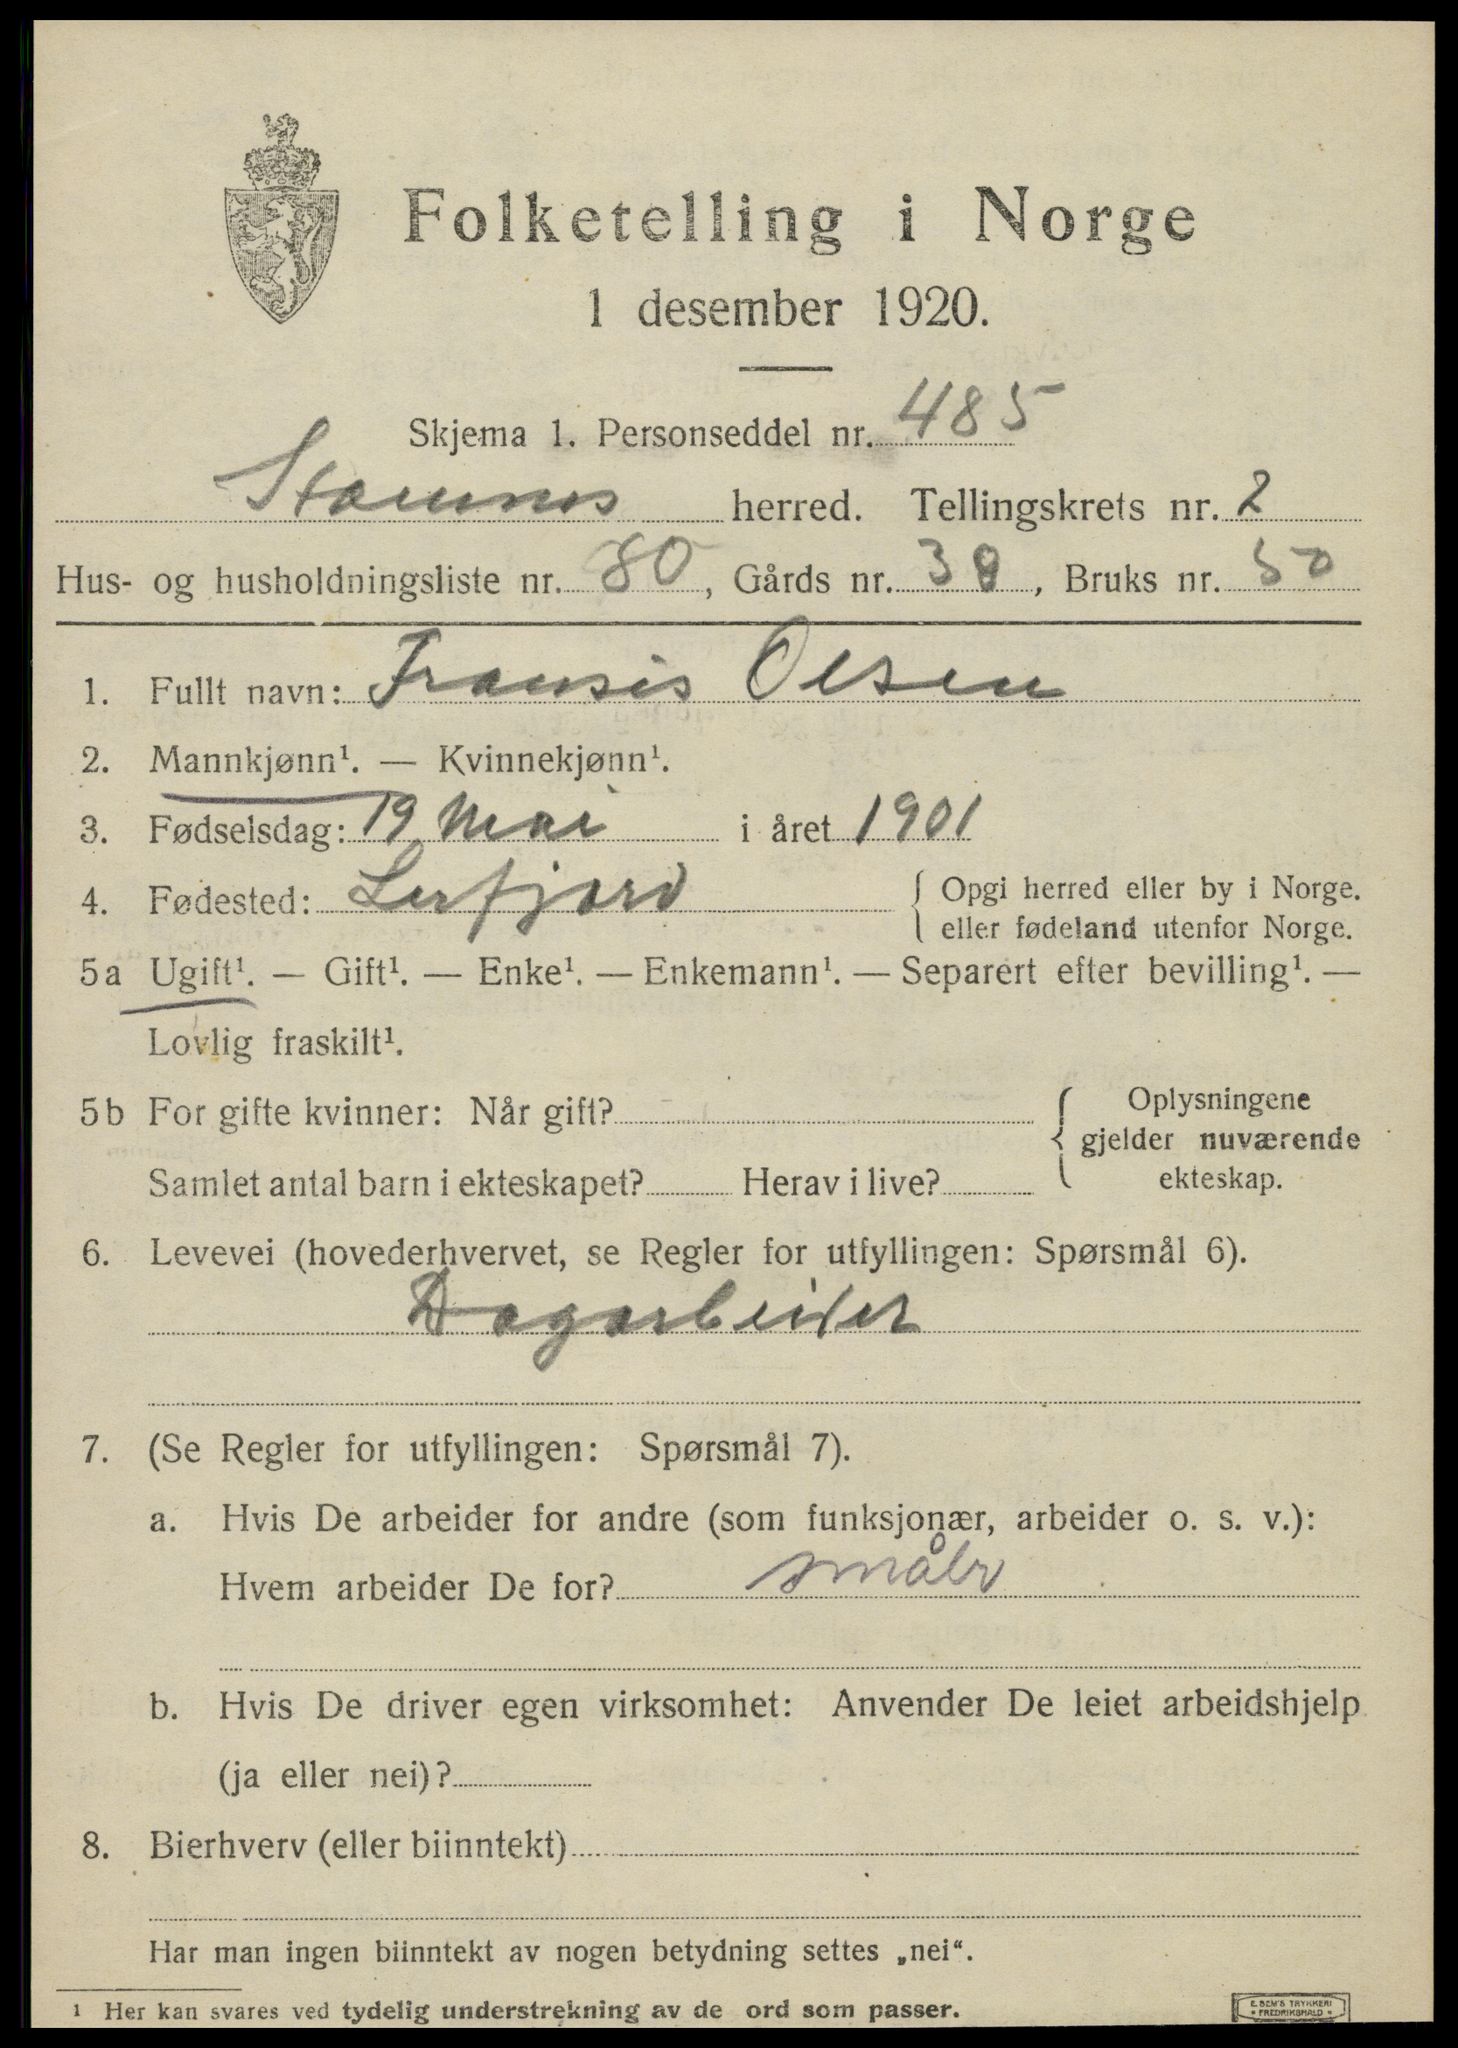 Folketelling i Norge
1 desember 1920.
Skjema 1. Personseddel nr. 485
Stamnes herred. Tellingskrets nr. 2
Hus- og husholdningsliste nr. 80, Gårds nr. 38, Bruks nr. 50
1. Fullt navn: Fransis Olsen
2. Mannkjønn¹. — Kvinnekjønn¹.
3. Fødselsdag: 19 Mai i året 1901
4. Fødested: Lerfjord { Opgi herred eller by i Norge.
eller fødeland utenfor Norge.
5a Ugift¹. — Gift¹. — Enke¹. — Enkemann¹. — Separert efter bevilling¹. —
Lovlig fraskilt¹.
5b For gifte kvinner: Når gift? { Oplysningene
gjelder nuværende
Samlet antal barn i ekteskapet? Herav i live? ekteskap.
6. Levevei (hovederhvervet, se Regler for utfyllingen: Spørsmål 6).
Dagarbeider
7. (Se Regler for utfyllingen: Spørsmål 7).
a. Hvis De arbeider for andre (som funksjonær, arbeider o. s. v.):
Hvem arbeider De for? småbr
b. Hvis De driver egen virksomhet: Anvender De leiet arbeidshjelp
(ja eller nei)?
8. Bierhverv (eller biinntekt)
Har man ingen biinntekt av nogen betydning settes „nei“.
1 Her kan svares ved tydelig understrekning av de ord som passer.
E. SEM'S TRYKKERI
FREDRIKSHALD